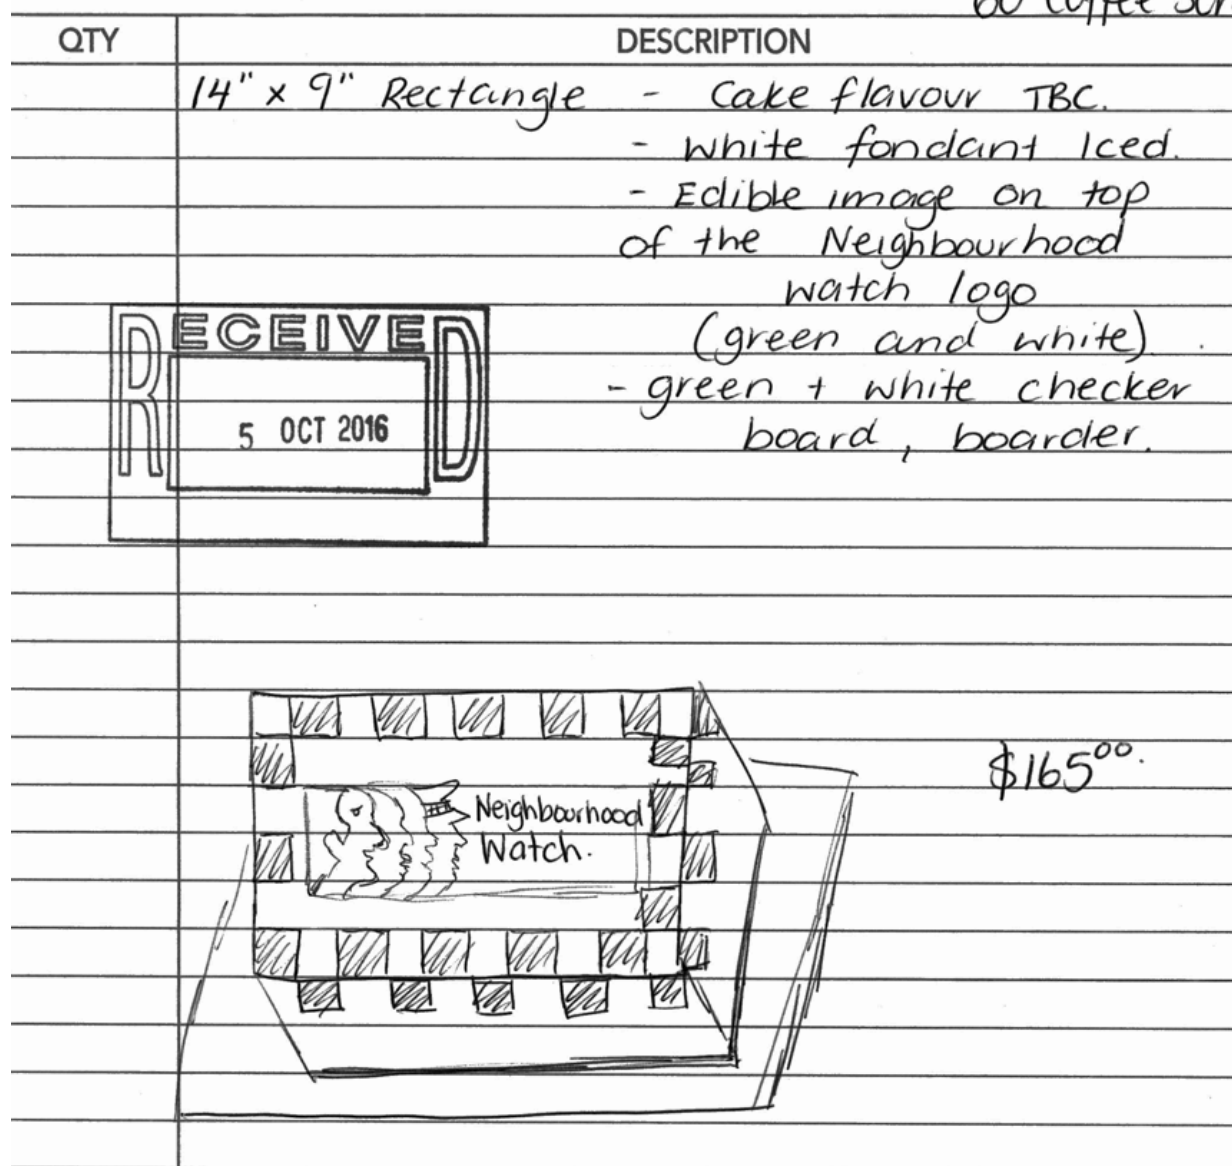 60 coffee
QTY DESCRIPTION
14" x 9" Rectangle - Cake flavour TBC.
- white fondant Iced.
- Edible image on top
of the Neighbourhood
watch logo
(green and white)
- green + white checker
board, boarder.
RECEIVED
5 OCT 2016
Neighbourhood
Watch.
$165.00